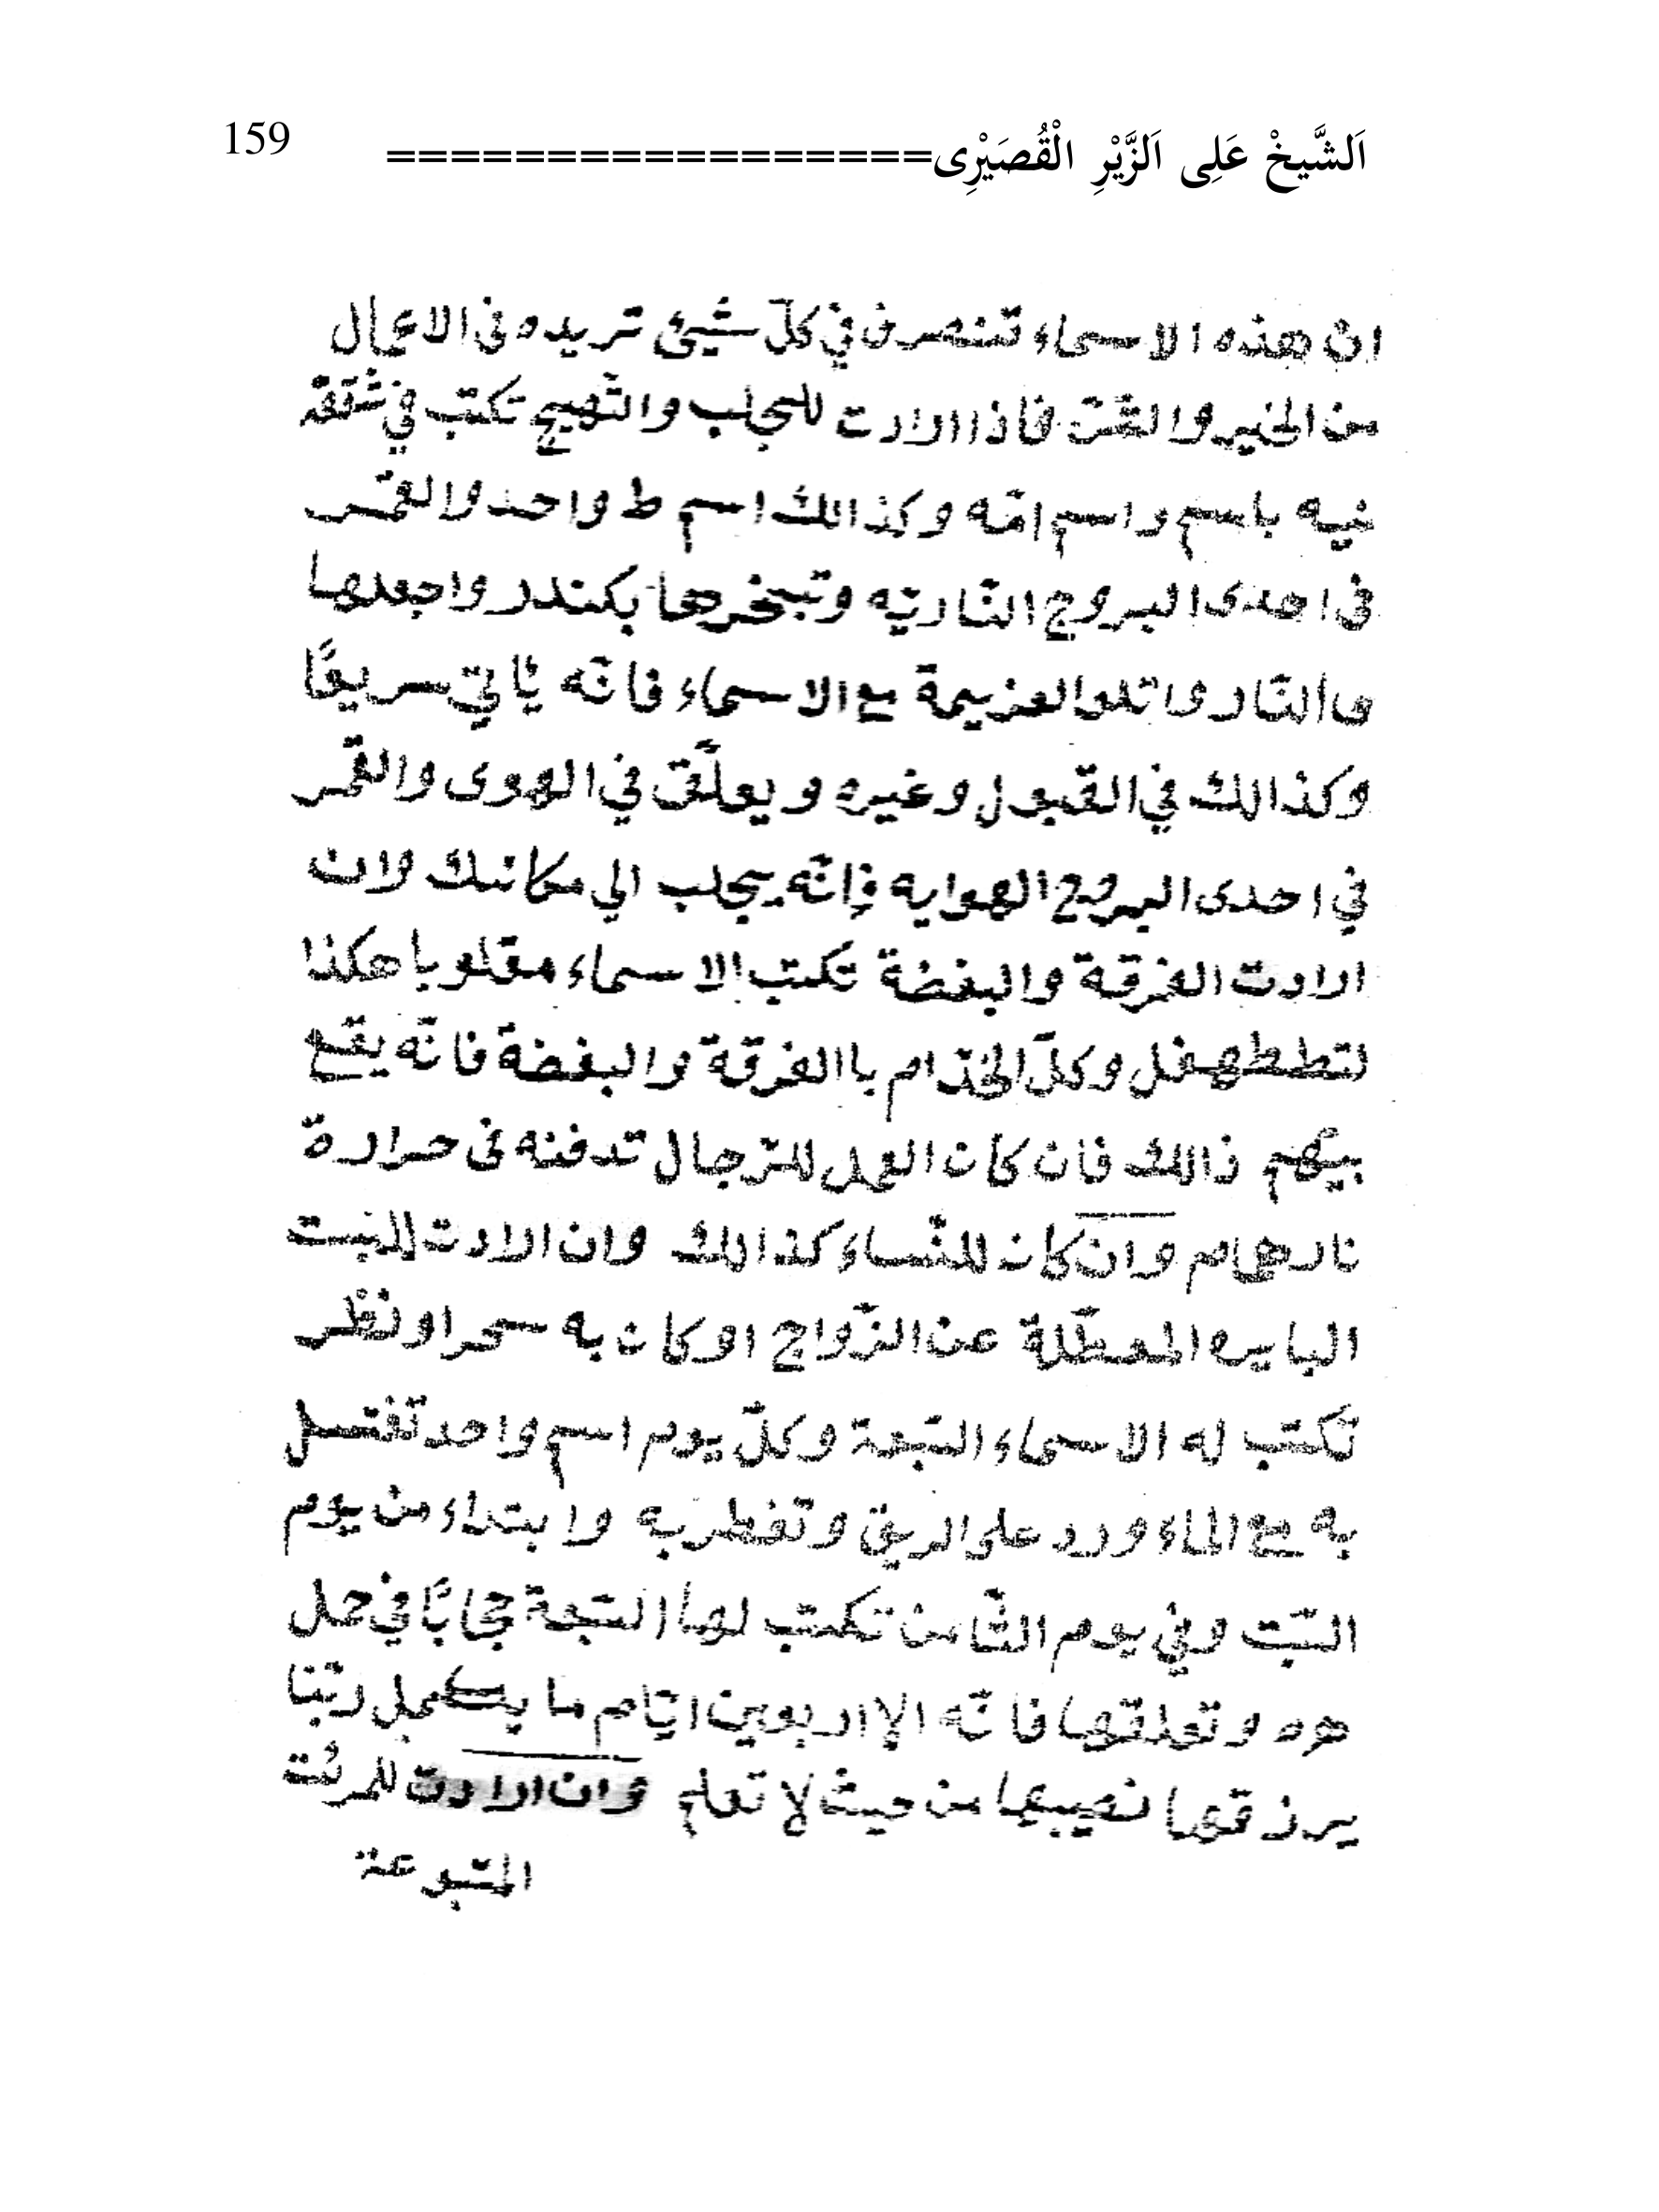 اَلشَّيخْ عَلِى اَلزَّيْرِ الْقُصَيْرِى================= 159
ان هذه الاسماء تنصرف في كلّ شيئ تريده فى الاعمال
من الخير والشّرّ فاذا الارت للجلب والتّهيج تكتب في شقفة
نيه باسم واسم امّه وكذالك اسم ط واحد والقمر
فى احدى البروج النّاريّه وتبخرها بكندر واجعلها
النّار تلوا العزيمة مع الاسماء فانّه يأتي سريعًا
وكذالك في القبول وغيره ويعلّق في الهوى والقمر
في احدى البروج الهوايه فإنّه يجلب الي مكانك وان
ارادت الفرقة والبغضة تكتب الاسماء مقلوبا هكذا
لتططهفل وكلّ الخدّام باالفرقة والبغضة فانّه يقع
بينهم ذالك فان كان العمل للرّجال تدفنه فى حرارة
نار همام وان كان للنّساء كذالك وان الارت للبنت
البايره المعطّلة عن الزّواج اوكان به سحر او نظر
تكتب له الاسماء السّبعة وكلّ يوم اسم واحد تغتسل
به مع الماء ورد على الريق وتفطر به وابتداء من يوم
السّبت وفي يوم الثّامن تكتب لها السّبعة حجابًا في حمل
هره وتعلقها فانّه الا اربعين ايّام ما يكمل ربّنا
يرزقها نصيبها من حيث لا تعلم وان ارادت للمرئت
المتبوعة